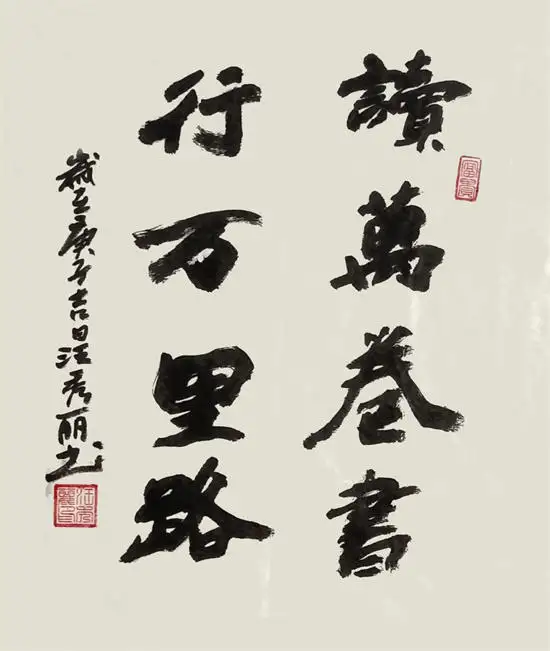 讀萬卷書
行万里路
歲在庚子吉日汪秀丽书